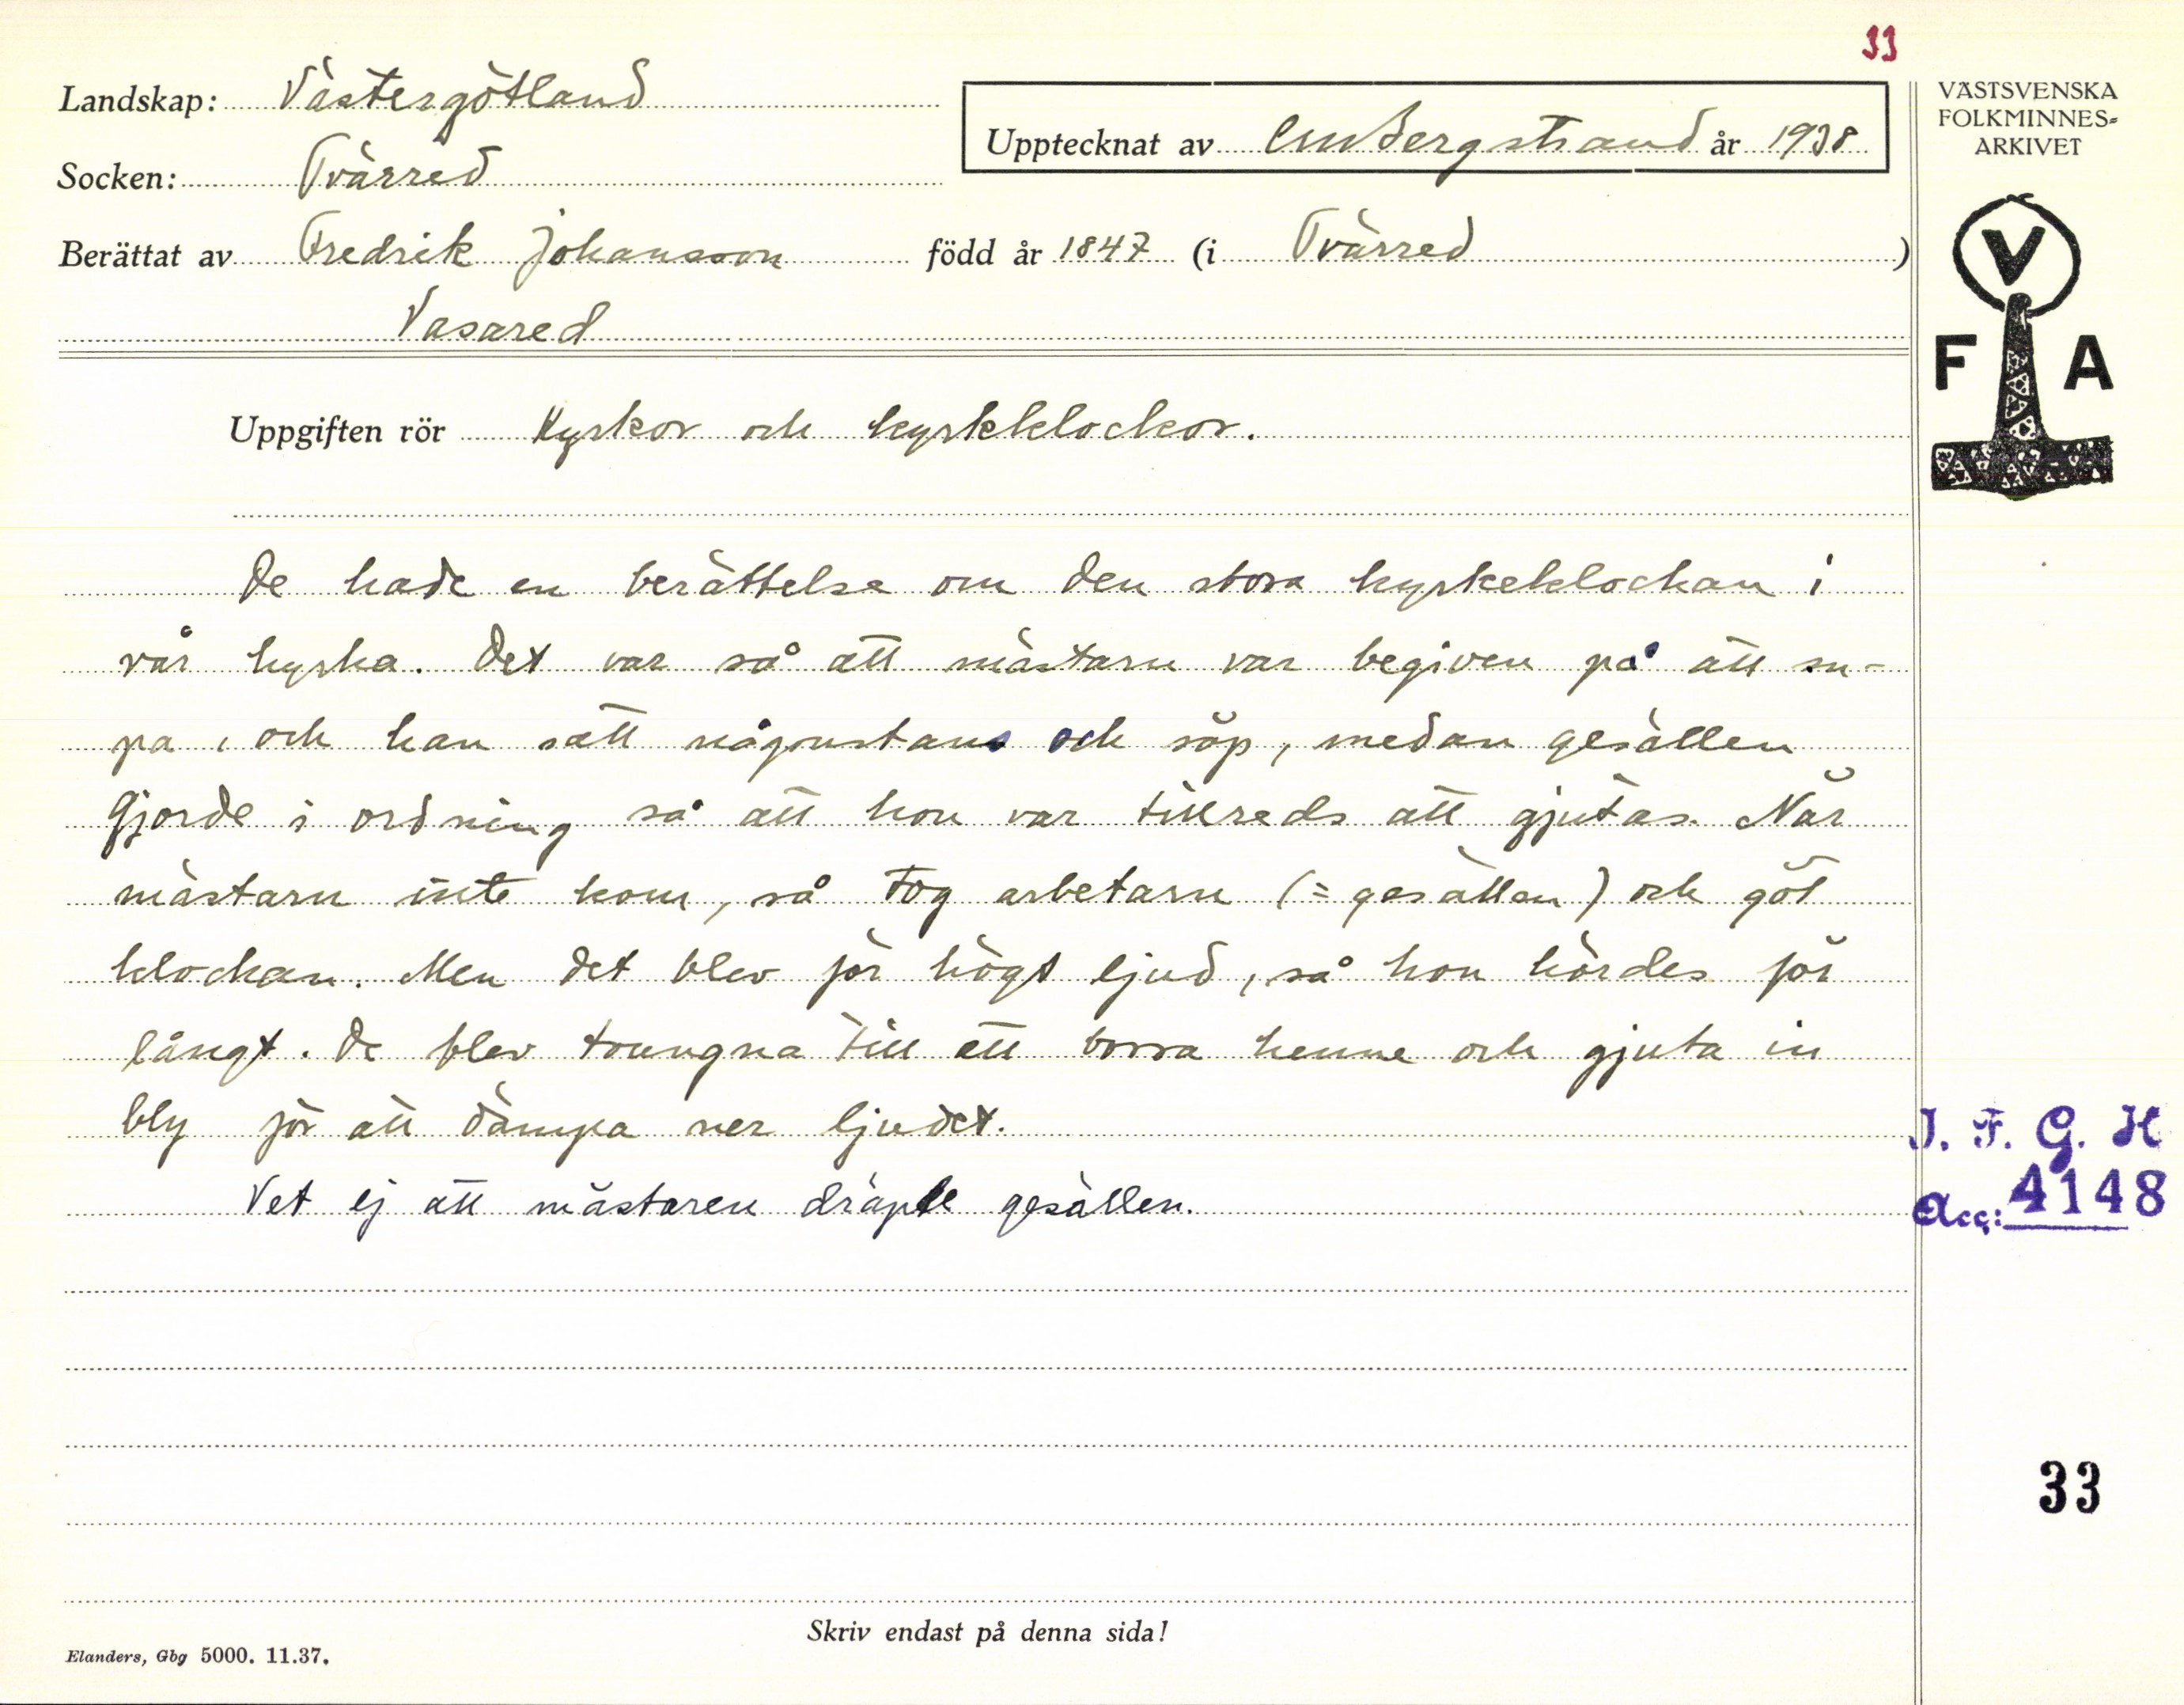 33
Landskap: Västergötland
Upptecknat av CMBergstrand år 1938
Socken: Tvärred
Berättat av Fredrik Johansson född år 1847 (i Tvärred)
Vasared
VÄSTSVENSKA
FOLKMINNES=
ARKIVET
V
F A
Uppgiften rör Kyrkor och kyrkklockor.
De hade en berättelse om den stora kyrkeklockan i
vår kyrka. Det var så att mästarn var begiven på att su-
pa, och han satt någonstans och söp, medan gesällen
gjorde i ordning så att hon var tillreds att gjutas. När
mästarn inte kom, så tog arbetarn (= gesällen) och göt
klockan. Men det blev för högt ljud, så hon hördes för
långt. De blev tvungna till att borra henne och gjuta in
bly för att dämpa ner ljudet.
Vet ej att mästaren dräpte gesällen.
I. F. G. H
Acc: 4148
33
Skriv endast på denna sida!
Elanders, Gbg 5000. 11.37.